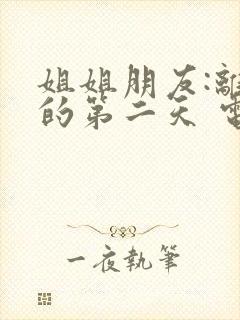 姐姐朋友:離
的第二天 電
一夜執筆